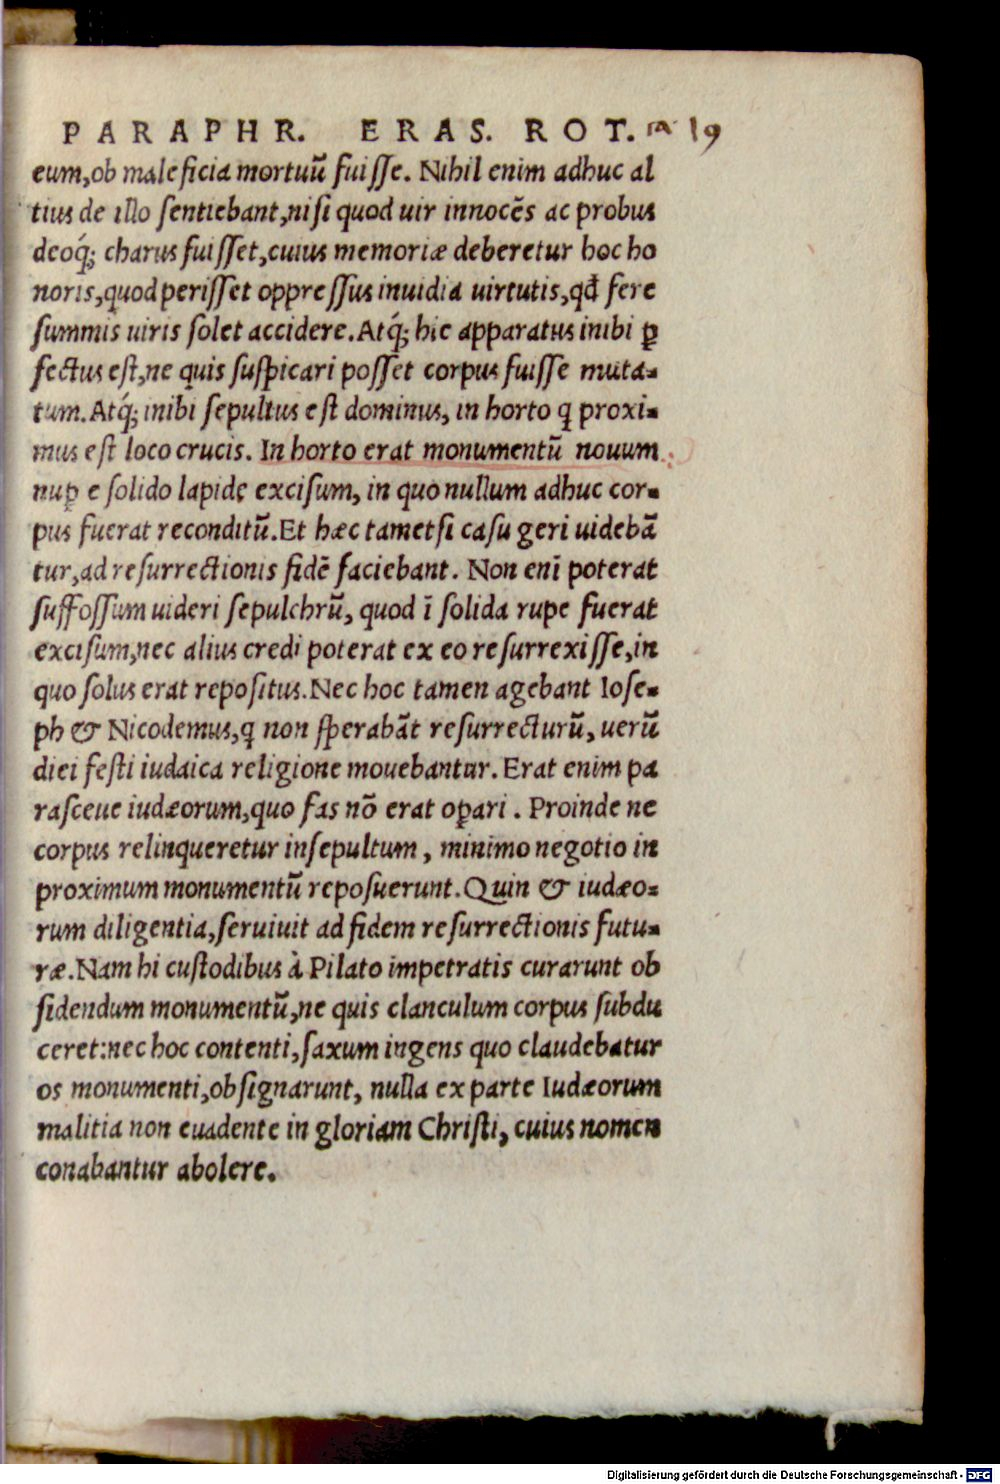 PARAPHR. ERAS. ROT. 19
eum,ob maleficia mortuū fuiſſe. Nihil enim adhuc al
tius de illo ſentiebant,niſi quod uir innocēs ac probus
deoq́; charus fuiſſet,cuius memoriæ deberetur hoc ho
noris,quod periſſet oppreſſus inuidia uirtutis,qđ fere
ſummis uiris ſolet accidere.Atq́; hic apparatus inibi ꝑ
fectus eſt,ne quis ſuſpicari poſſet corpus fuiſſe muta-
tum.Atq́; inibi ſepultus eſt dominus, in horto q̨ proxi-
mus eſt loco crucis. In horto erat monumentū nouum
nuꝑ e ſolido lapide exciſum, in quo nullum adhuc cor-
pus fuerat reconditū.Et hæc tametſi caſu geri uidebā
tur,ad reſurrectionis fidē faciebant. Non enī poterat
ſuffoſſum uideri ſepulchrū, quod ī ſolida rupe fuerat
exciſum,nec alius credi poterat ex eo reſurrexiſſe,in
quo ſolus erat repoſitus.Nec hoc tamen agebant Ioſe-
ph & Nicodemus,q̨ non ſperabāt reſurrecturū, uerū
diei feſti iudaica religione mouebantur. Erat enim pa
raſceue iudæorum,quo fas nō erat oꝑari. Proinde ne
corpus relinqueretur inſepultum, minimo negotio in
proximum monumentū repoſuerunt.Quin & iudæo-
rum diligentia,ſeruiuit ad fidem reſurrectionis futu-
ræ.Nam hi cuſtodibus à Pilato impetratis curarunt ob
ſidendum monumentū,ne quis clanculum corpus ſubdu
ceret:nec hoc contenti,ſaxum ingens quo claudebatur
os monumenti,obſignarunt, nulla ex parte Iudæorum
malitia non euadente in gloriam Chriſti, cuius nomen
conabantur abolere.
Digitalisierung gefördert durch die Deutsche Forschungsgemeinschaft - DFG